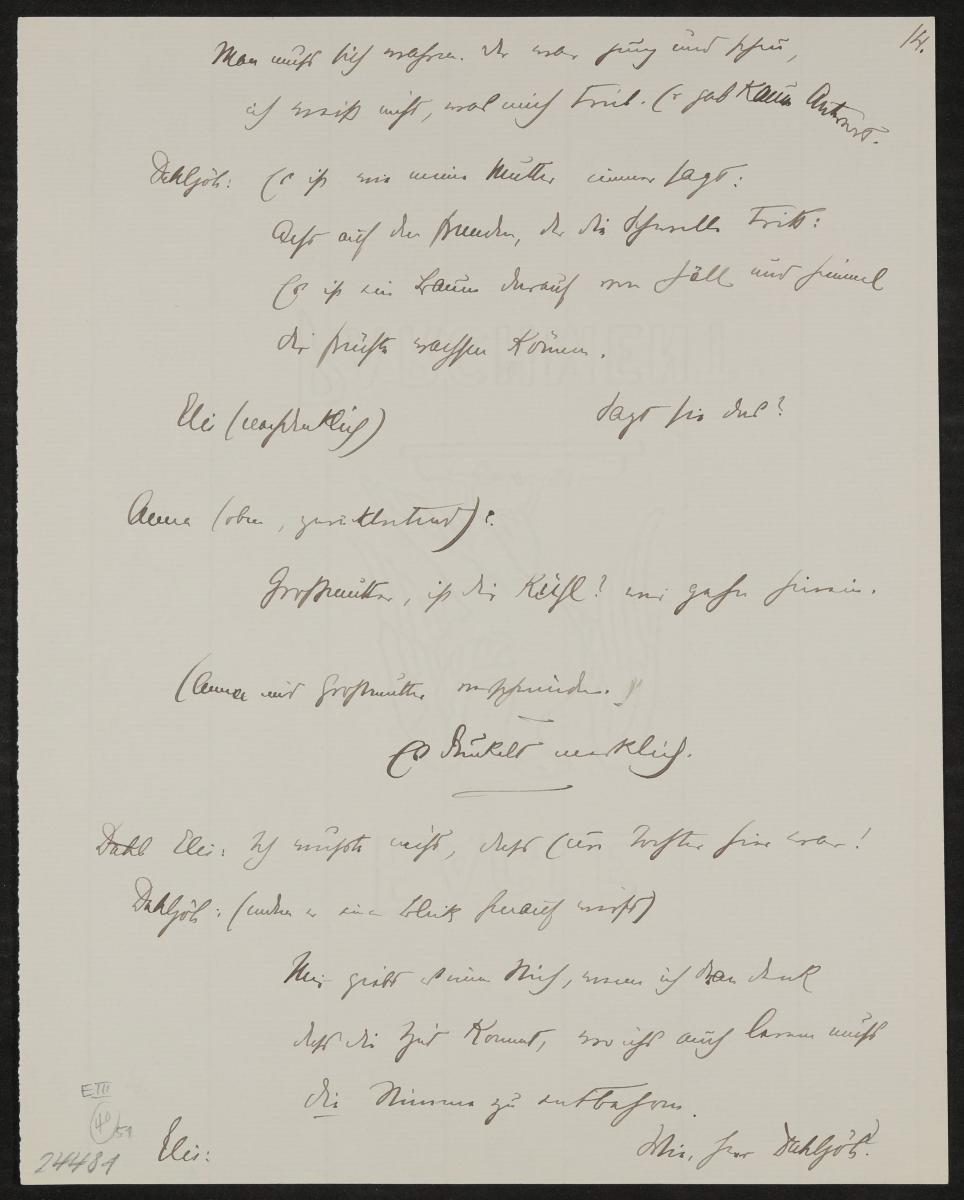 14.
Man muss sich wehren. Er war jung und scheu,
ich weiß nicht, was mich trieb. Er gab kaum Antwort.
Dahlsjöh: Es ist wie meine Mutter immer sagt:
Acht auf den Fremden, der die Schwelle tritt:
Es ist ein Raum darauf von Höll und Himmel
die Früchte wachsen können.
Elis (nachdenklich) Sagt sie das?
Anna (oben, zurücktretend):
Großmutter, ist dir kühl? wir gehn hinein.
(Anna und Großmutter verschwinden.
Es dunkelt merklich.
Dahl Elis: Ich wusste nicht, dass Eure Tochter hier war!
Dahlsjöh: (indem er einen Blick herauf wirft)
Mir giebts einen Stich, wenn ich dran denk
dass die Zeit kommt, wo ichs auch lernen muss
die Stimme zu entbehren.
Elis: Wie, Herr Dahlsjöh?
EIII
40
51
24481